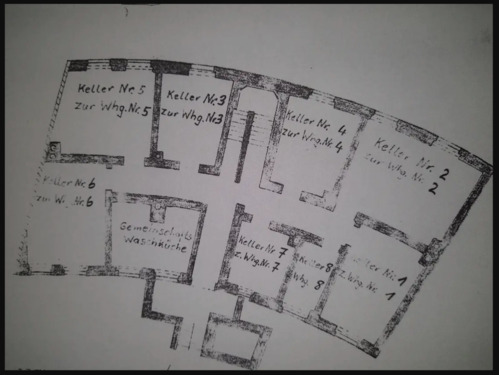 Keller Nr. 5
zur Whg.Nr. 5
Keller Nr. 3
zur Whg.Nr. 3
Keller Nr. 4
zur Whg.Nr. 4
Keller Nr. 2
zur Whg. Nr.
2
Keller Nr. 6
zur W. Nr. 6
Gemeinschafts
Waschküche
Keller Nr. 7
z. Whg. Nr. 7
Keller 8
Whg. 8
Keller Nr. 1
z. Whg. Nr. 1